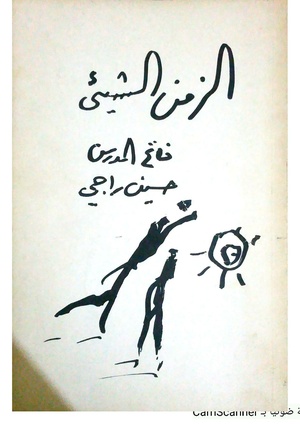 الزمن الشيئ
فاتح المدرس
حسين راجي
ة ضوئيا بـ CamScanner